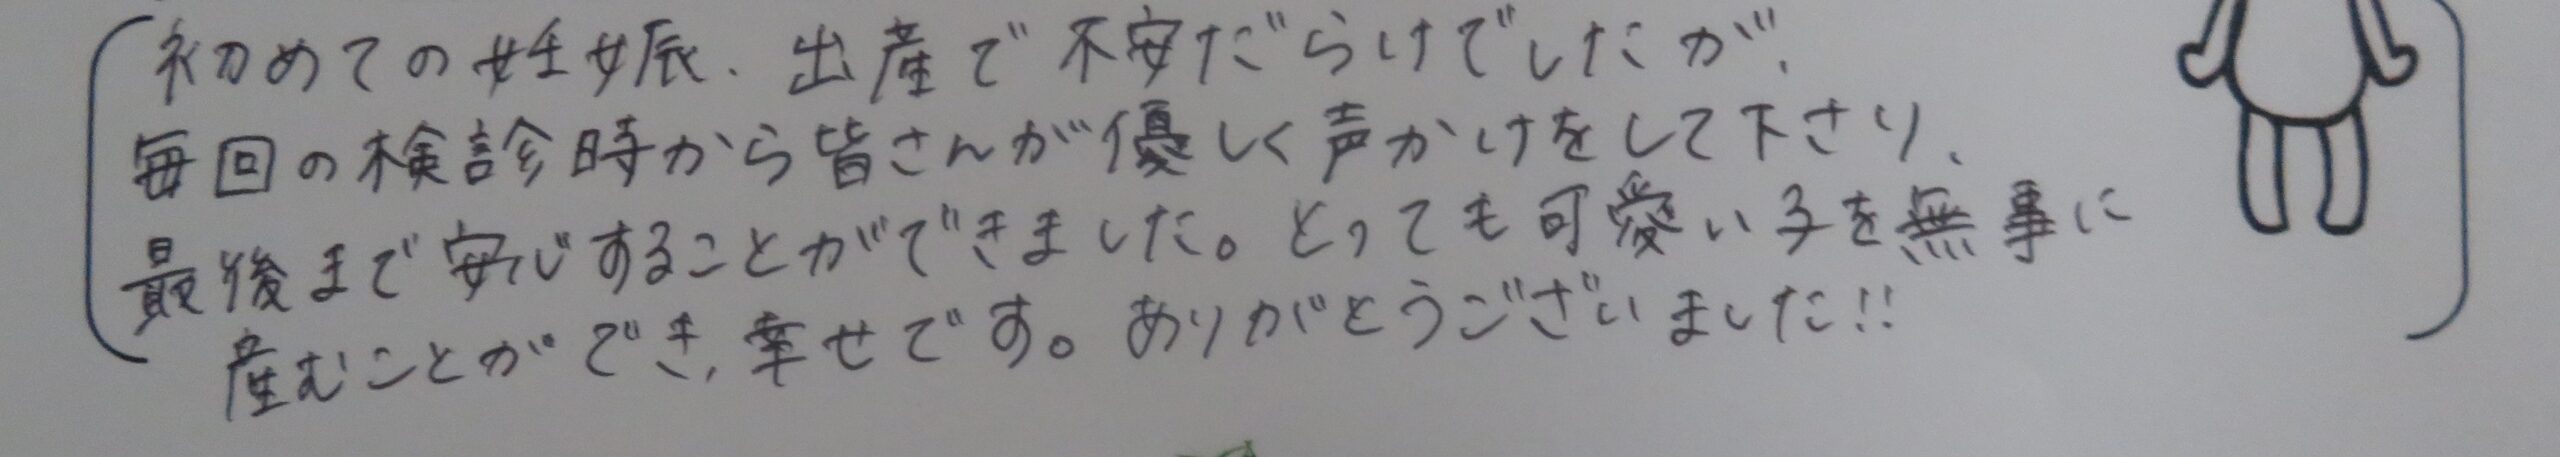 初めての妊娠、出産で不安だらけでしたが、
毎回の検診時から皆さんが優しく声かけをして下さり、
最後まで安心することができました。とっても可愛い子を無事に
産むことができ、幸せです。ありがとうございました!!